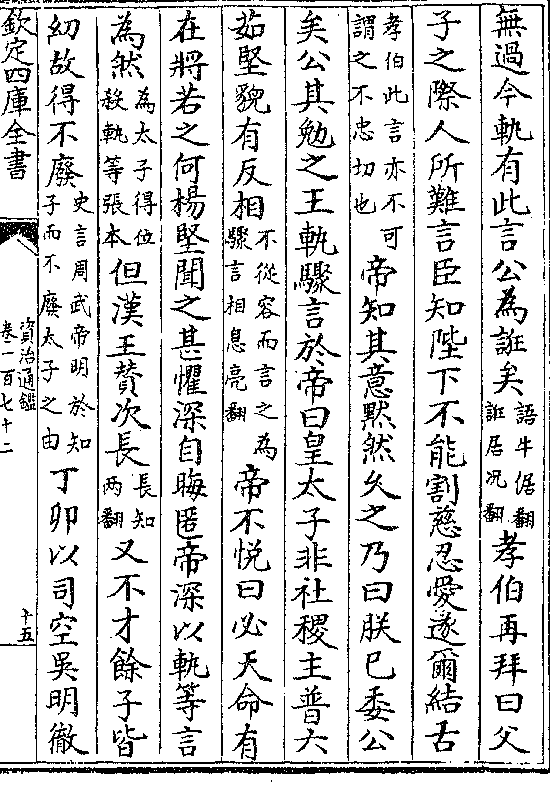 無過今軌有此言公為誑矣語牛倨翻誑居況翻孝伯再拜曰父
子之際人所難言臣知陛下不能割慈忍愛遂爾結舌
孝伯此言亦不可謂之不忠切也帝知其意黙然乆之乃曰朕已委公
矣公其勉之王軌驟言於帝曰皇太子非社稷主普六
茹堅貌有反相不從容而言之為驟言相息亮翻帝不悦曰必天命有
在將若之何楊堅聞之甚懼深自晦匿帝深以軌等言
為然為太子得位殺軌等張本但漢王賛次長長知两翻又不才餘子皆
㓜故得不廢史言周武帝明於知子而不廢太子之由丁卯以司空吳明徹
欽定四庫全書
資治通鑑
卷一百七十二
十五